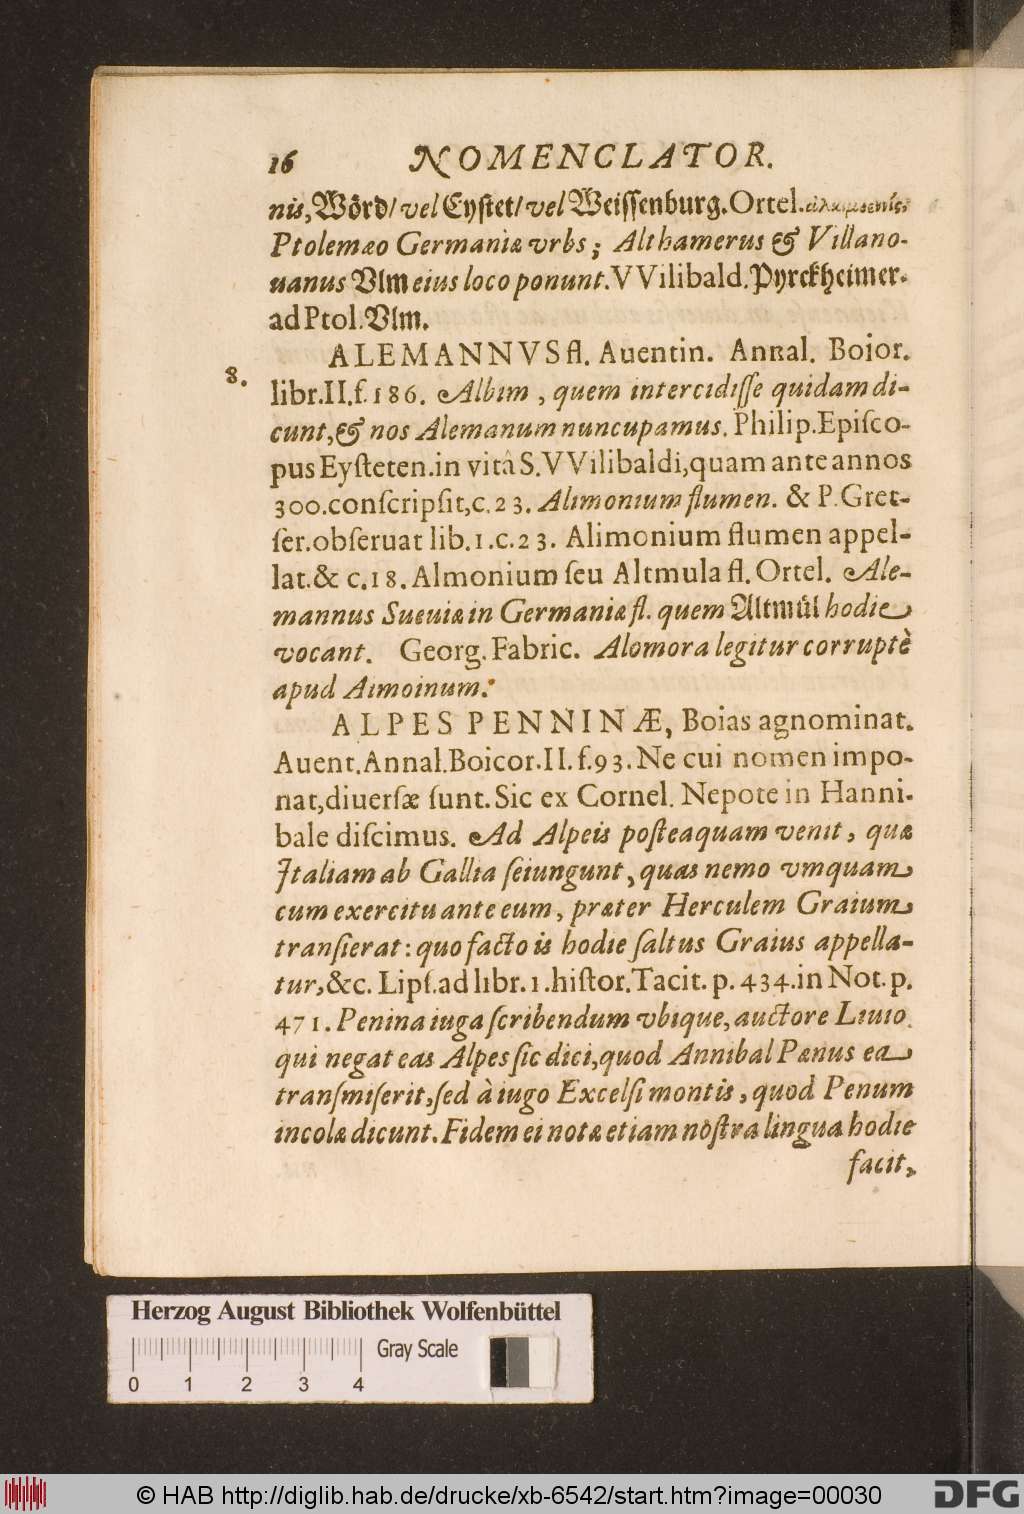 16 NOMENCLATOR.
nis, Wörd/ vel Eystet/ vel Weissenburg. Ortel.
Ptolemæo Germaniæ vrbs; Althamerus & Villano-
uanus Vlm eius loco ponunt. VVilibald. Pyrckheimer.
ad Ptol. Vlm.
ALEMANNVS fl. Auentin. Annal. Boior.
8.
libr. II. f. 186. Albim, quem intercidisse quidam di-
cunt, & nos Alemanum nuncupamus. Philip. Episco-
pus Eysteten. in vitâ S. VVilibaldi, quam ante annos
300. conscripsit, c. 23. Alimonium flumen. & P. Gret-
ser. obseruat lib. 1. c. 23. Alimonium flumen appel-
lat. & c. 18. Almonium seu Altmula fl. Ortel. Ale-
mannus Sueuiæ in Germaniæ fl. quem Altmůl hodie
vocant. Georg. Fabric. Alomora legitur corruptè
apud Aimoinum.
ALPES PENNINÆ, Boias agnominat.
Auent. Annal. Boicor. II. f. 93. Ne cui nomen impo-
nat, diuersæ sunt. Sic ex Cornel. Nepote in Hanni-
bale discimus. Ad Alpeis posteaquam venit, quæ
Italiam ab Gallia seiungunt, quas nemo vmquam
cum exercitu ante eum, præter Herculem Graium
transierat: quo facto is hodie saltus Graius appella-
tur, &c. Lips. ad libr. 1. histor. Tacit. p. 434. in Not. p.
471. Penina iuga scribendum vbique, auctore Liuio.
qui negat eas Alpes sic dici, quod Annibal Pænus ea
transmiserit, sed à iugo Excelsi montis, quod Penum
incolæ dicunt. Fidem ei notæ etiam nostra lingua hodie
facit,
Herzog August Bibliothek Wolfenbüttel
Gray Scale
0 1 2 3 4
© HAB http://diglib.hab.de/drucke/xb-6542/start.htm?image=00030
DFG